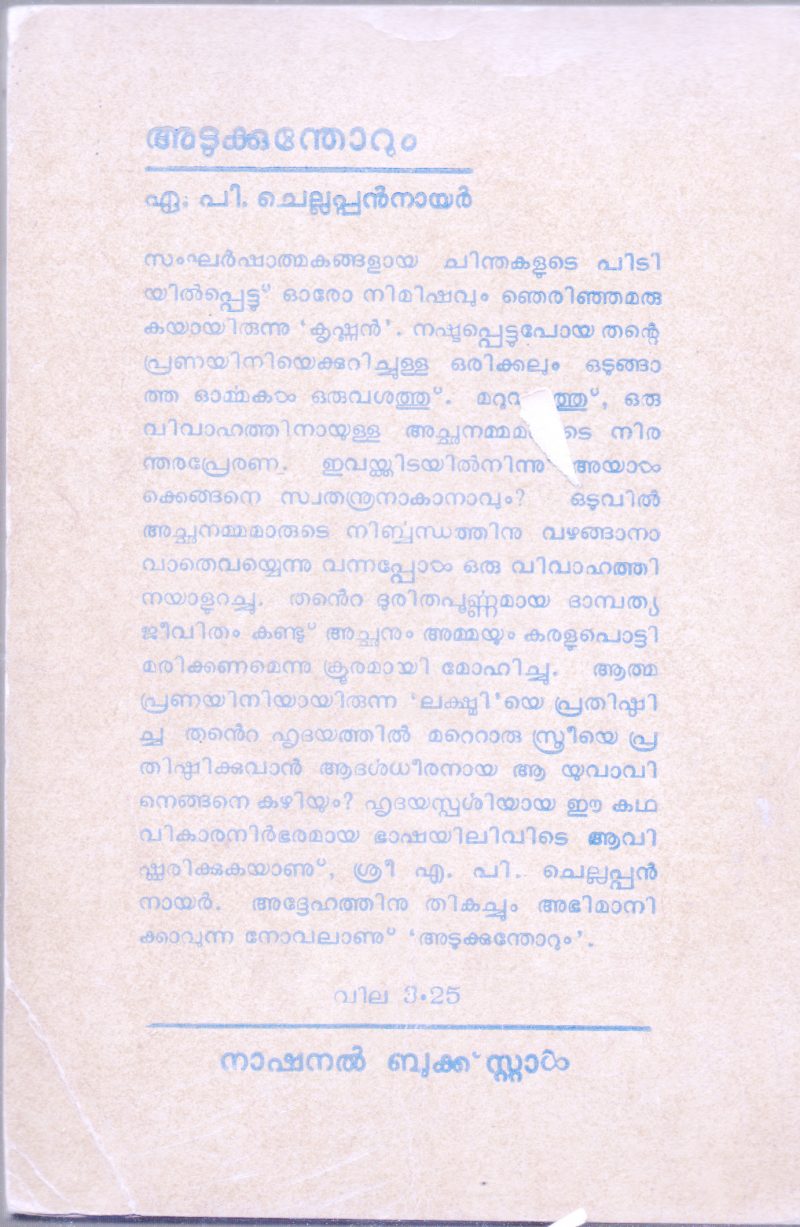 അടുക്കുന്തോറും
ഏ. പി. ചെല്ലപ്പൻനായർ
സംഘർഷാത്മകങ്ങളായ ചിന്തകളുടെ പിടി
യിൽപ്പെട്ടു് ഓരോ നിമിഷവും ഞെരിഞ്ഞമരു
കയായിരുന്നു ‘കൃഷ്ണൻ’. നഷ്ടപ്പെട്ടുപോയ തന്റെ
പ്രണയിനിയെക്കുറിച്ചുള്ള ഒരിക്കലും ഒടുങ്ങാ
ത്ത ഓൎമ്മകൾ ഒരുവശത്തു്. ഒരു
വിവാഹത്തിനായുള്ള നിര
ന്തരപ്രേരണ. ഇവയ്ക്കിടയിൽനിന്നു അയാൾ
ക്കെങ്ങനെ സ്വതന്ത്രനാകാനാവും? ഒടുവിൽ
അച്ഛനമ്മമാരുടെ നിൎബ്ബന്ധത്തിനു വഴങ്ങാനാ
വാതെവയ്യെന്നു വന്നപ്പോൾ ഒരു വിവാഹത്തി
നയാളുറച്ചു. തൻെറ ദുരിതപൂൎണ്ണമായ ദാമ്പത്യ
ജീവിതം കണ്ടു് അച്ഛനും അമ്മയും കരളുപൊട്ടി
മരിക്കണമെന്നു ക്രൂരമായി മോഹിച്ചു. ആത്മ
പ്രണയിനിയായിരുന്ന ‘ലക്ഷ്മി’യെ പ്രതിഷ്ഠി
ച്ച തൻെറ ഹൃദയത്തിൽ മറെറാരു സ്ത്രീയെ പ്ര
തിഷ്ഠിക്കുവാൻ ആദൎശധീരനായ ആ യുവാവി
നെങ്ങനെ കഴിയും? ഹൃദയസ്പൎശിയായ ഈ കഥ
വികാരനിർഭരമായ ഭാഷയിലിവിടെ ആവി
ഷ്ക്കരിക്കുകയാണു്, ശ്രീ എ. പി. ചെല്ലപ്പൻ
നായർ. അദ്ദേഹത്തിനു തികച്ചും അഭിമാനി
ക്കാവുന്ന നോവലാണു് ‘അടുക്കുന്തോറും’.
വില 3·25
നാഷനൽ ബുക്ക് സ്റ്റാൾ